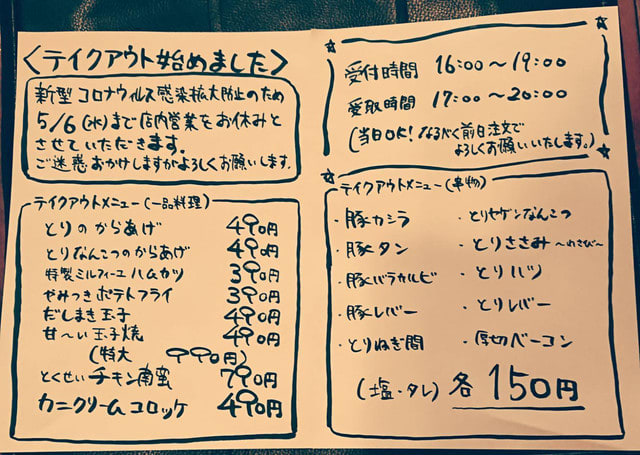 〈テイクアウト始めました〉
新型コロナウィルス感染拡大防止のため
5/6(水)まで店内営業をお休みと
させていただきます。
ご迷惑おかけしますがよろしくお願いします.
テイクアウトメニュー(一品料理)
とりのからあげ 490円
とりなんこつのからあげ 490円
特製ミルフィーユハムカツ 390円
やみつきポテトフライ 390円
だしまき玉子 490円
甘〜い玉子焼 490円
(特大 990円)
とくせいチキン南蛮 790円
カニクリームコロッケ 490円
受付時間 16:00〜19:00
受取時間 17:00〜20:00
(当日OK! なるべく前日注文で
よろしくお願いいたします。)
テイクアウトメニュー(串物)
・豚カシラ ・とりヤゲンなんこつ
・豚タン ・とりささみ〜わさび〜
・豚バラカルビ ・とりハツ
・豚レバー ・とりレバー
・とりねぎ間 ・厚切ベーコン
(塩・タレ) 各150円